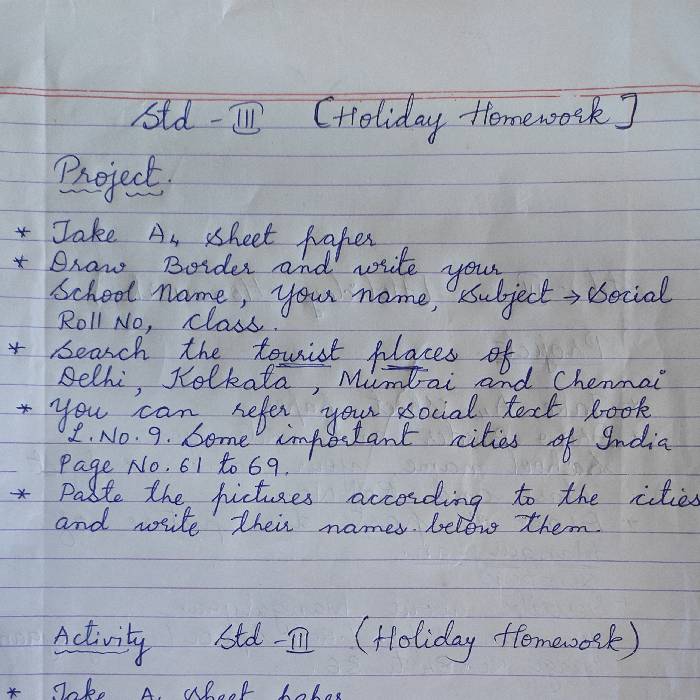 Std - III [Holiday Homework]
Project.
* Take A4 sheet paper
* Draw Border and write your
School name, your name, subject → Social
Roll No, class.
* Search the tourist places of
Delhi, Kolkata, Mumbai and Chennai
* You can refer your social text book
L.No.9. Some important cities of India
Page No. 61 to 69.
* Paste the pictures according to the cities
and write their names below them.
Activity Std - III (Holiday Homework)
* Take A4 sheet paper